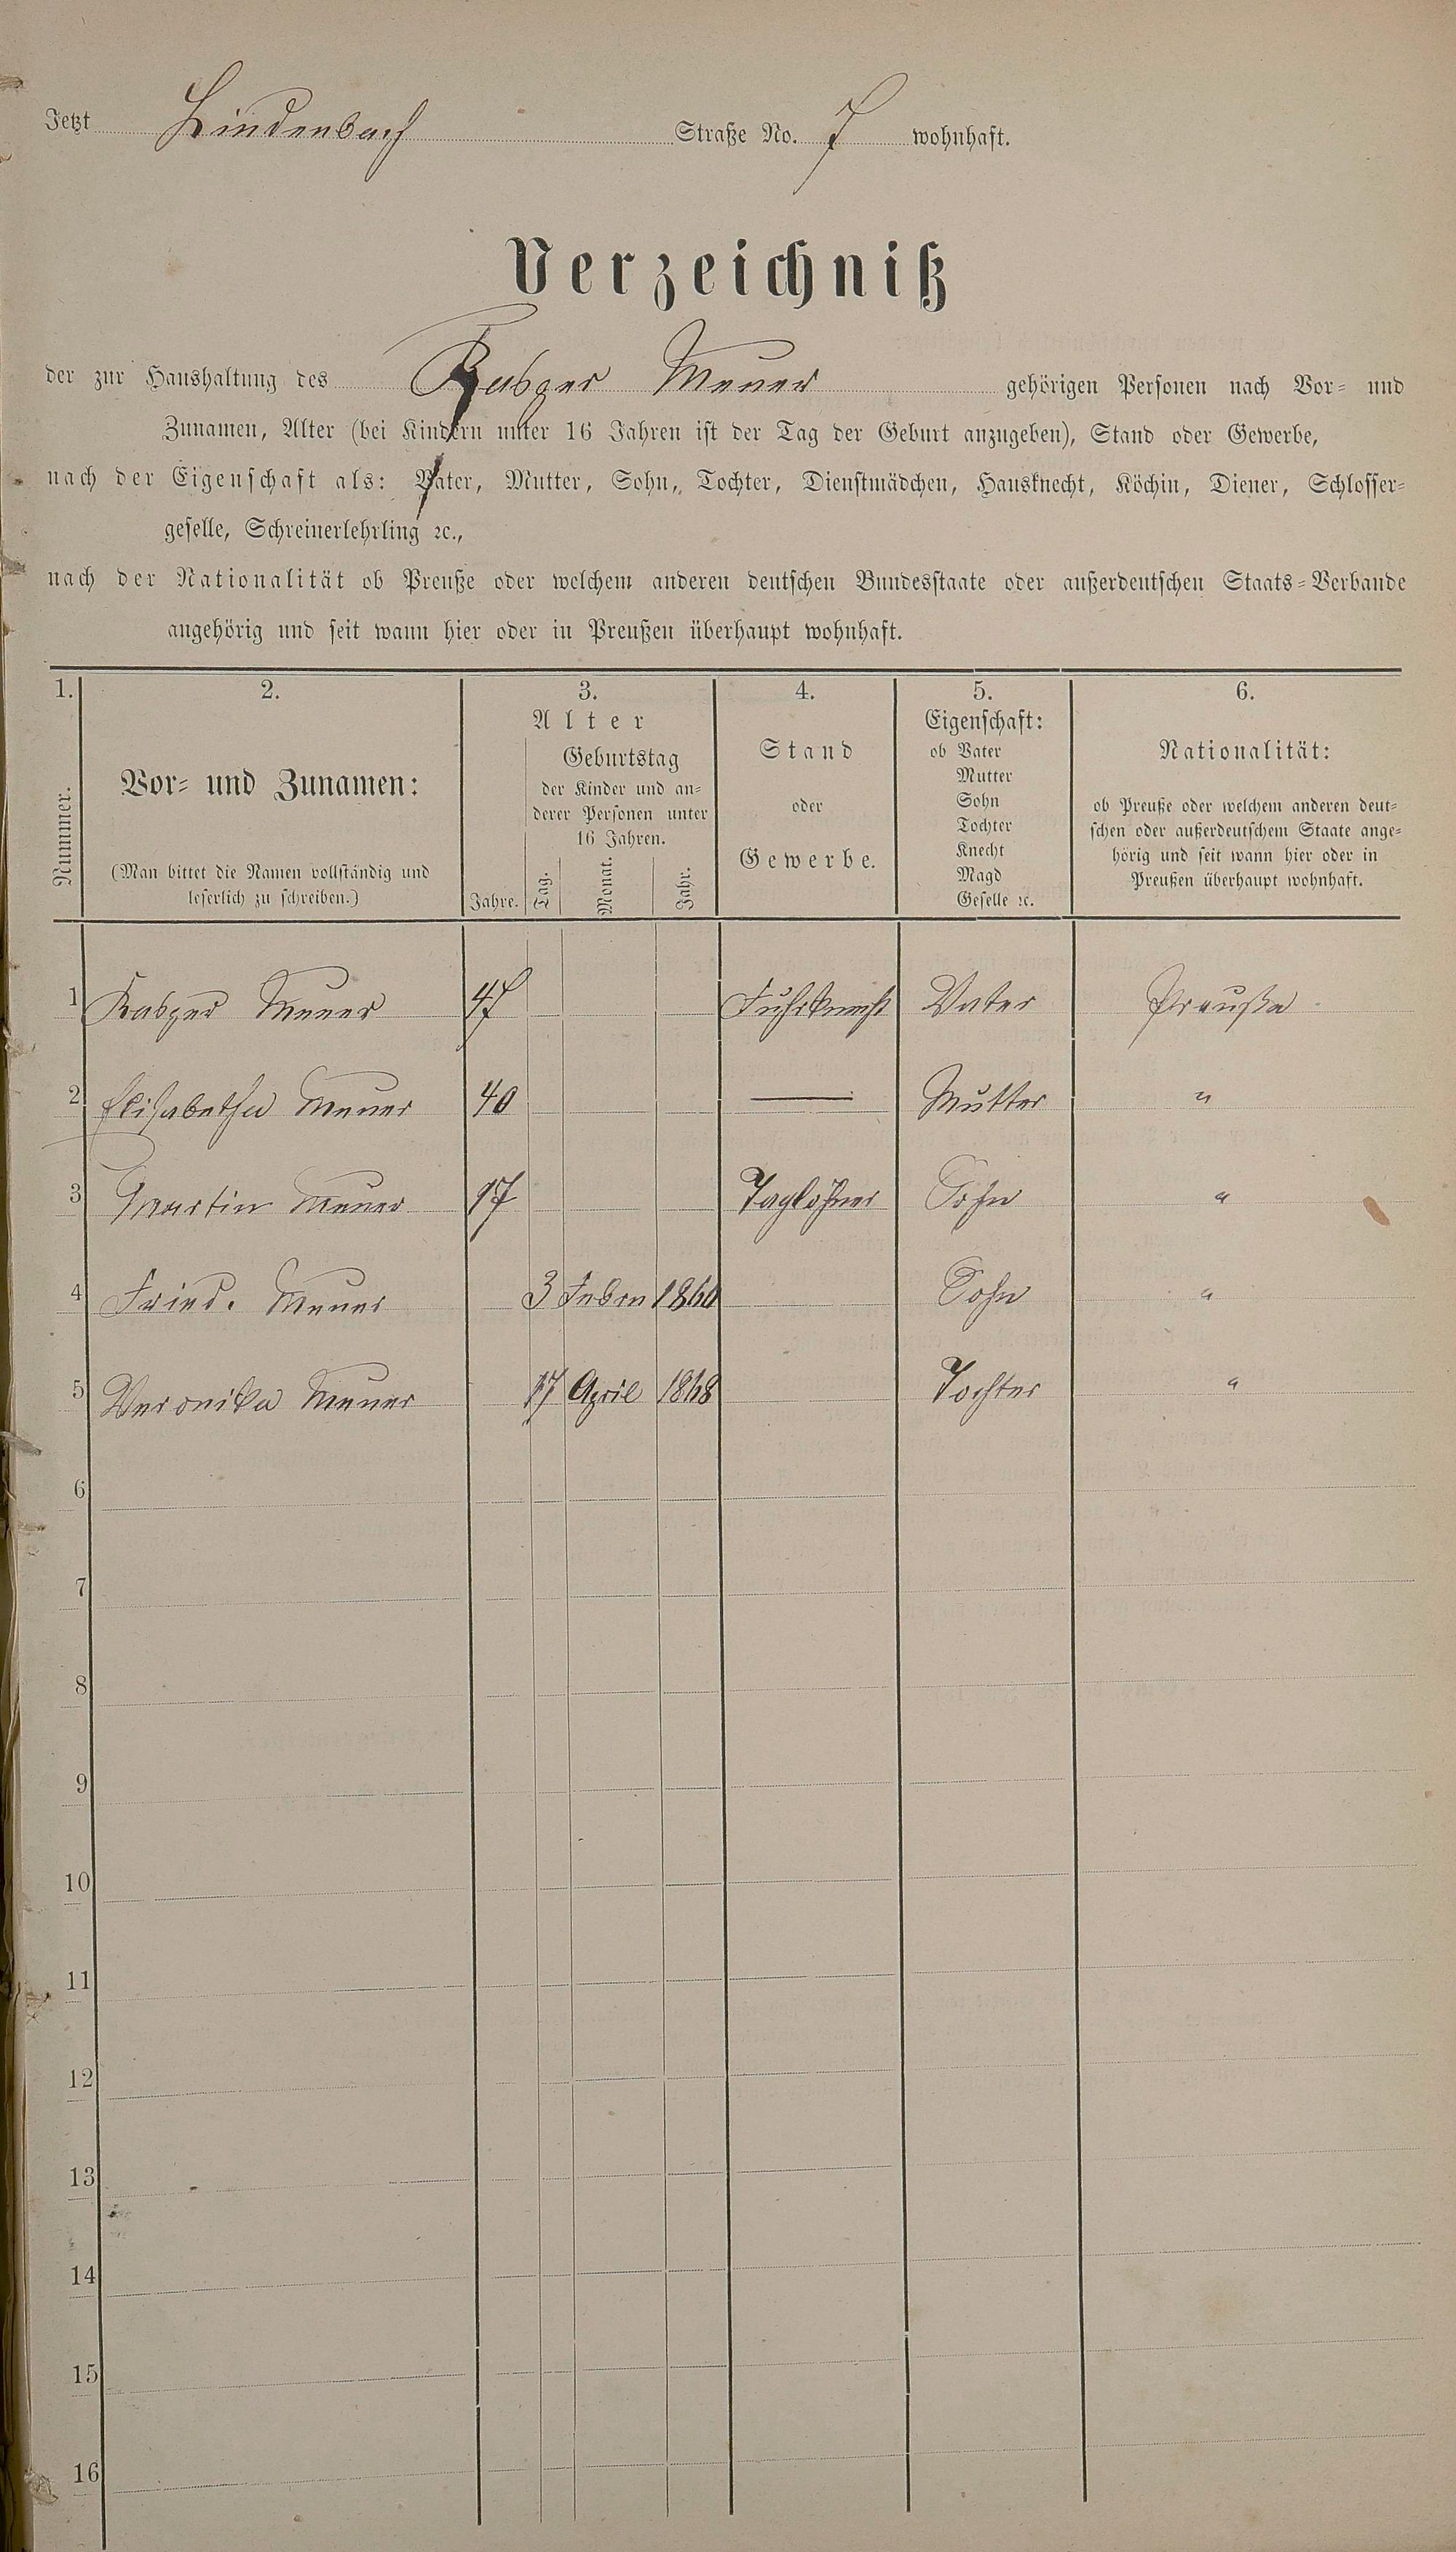 Jetzt Lindenbach Straße No. 7 wohnhaft.
Verzeichniß
der zur Haushaltung des Kasper Meuer gehörigen Personen nach Vor- und
Zunamen, Alter (bei Kindern unter 16 Jahren ist der Tag der Geburt anzugeben), Stand oder Gewerbe,
nach der Eigenschaft als: Vater, Mutter, Sohn, Tochter, Dienstmädchen, Hausknecht, Köchin, Diener, Schlosser-
geselle, Schreinerlehrling ꝛc.,
nach der Nationalität ob Preuße oder welchem anderen deutschen Bundesstaate oder außerdeutschen Staats-Verbande
angehörig und seit wann hier oder in Preußen überhaupt wohnhaft.
1. 2. 3. 4. 5. 6.
Nummer.
Vor- und Zunamen:
(Man bittet die Namen vollständig und
leserlich zu schreiben.)
Alter
Jahre.
Geburtstag
der Kinder und an-
derer Personen unter
16 Jahren.
Tag. Monat. Jahr.
Stand
oder
Gewerbe.
Eigenschaft:
ob Vater
Mutter
Sohn
Tochter
Knecht
Magd
Geselle ꝛc.
Nationalität:
ob Preuße oder welchem anderen deut-
schen oder außerdeutschem Staate ange-
hörig und seit wann hier oder in
Preußen überhaupt wohnhaft.
1 Kasper Meuer 47 Fuhrknecht Vater Preuße
2 Elisabetha Meuer 40 — Mutter "
3 Martin Meuer 17 Taglöhner Sohn "
4 Fried. Meuer 3 Febru Sohn "
5 Veronika Meuer 17 April 1868 Tochter "
6
7
8
9
10
11
12
13
14
15
16